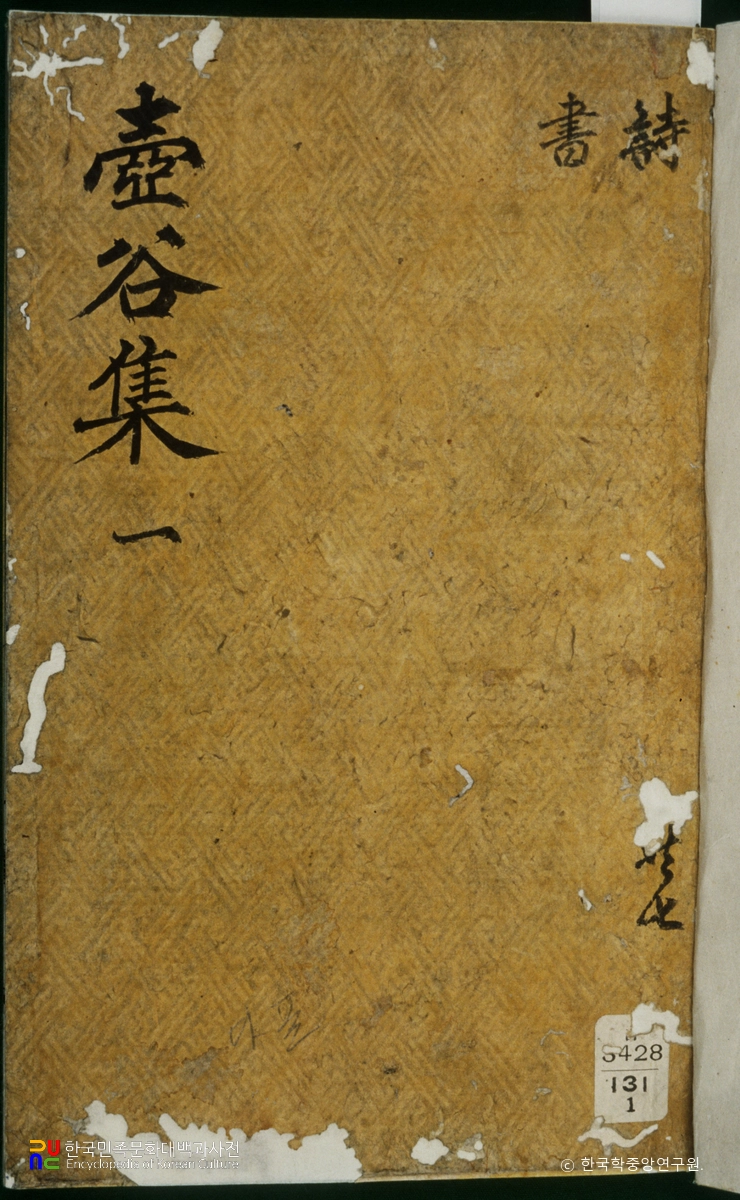 壺谷集 一
詩
書
共七
5428
131
1
한국민족문화대백과사전
Encyclopedia of Korean Culture
© 한국학중앙연구원.